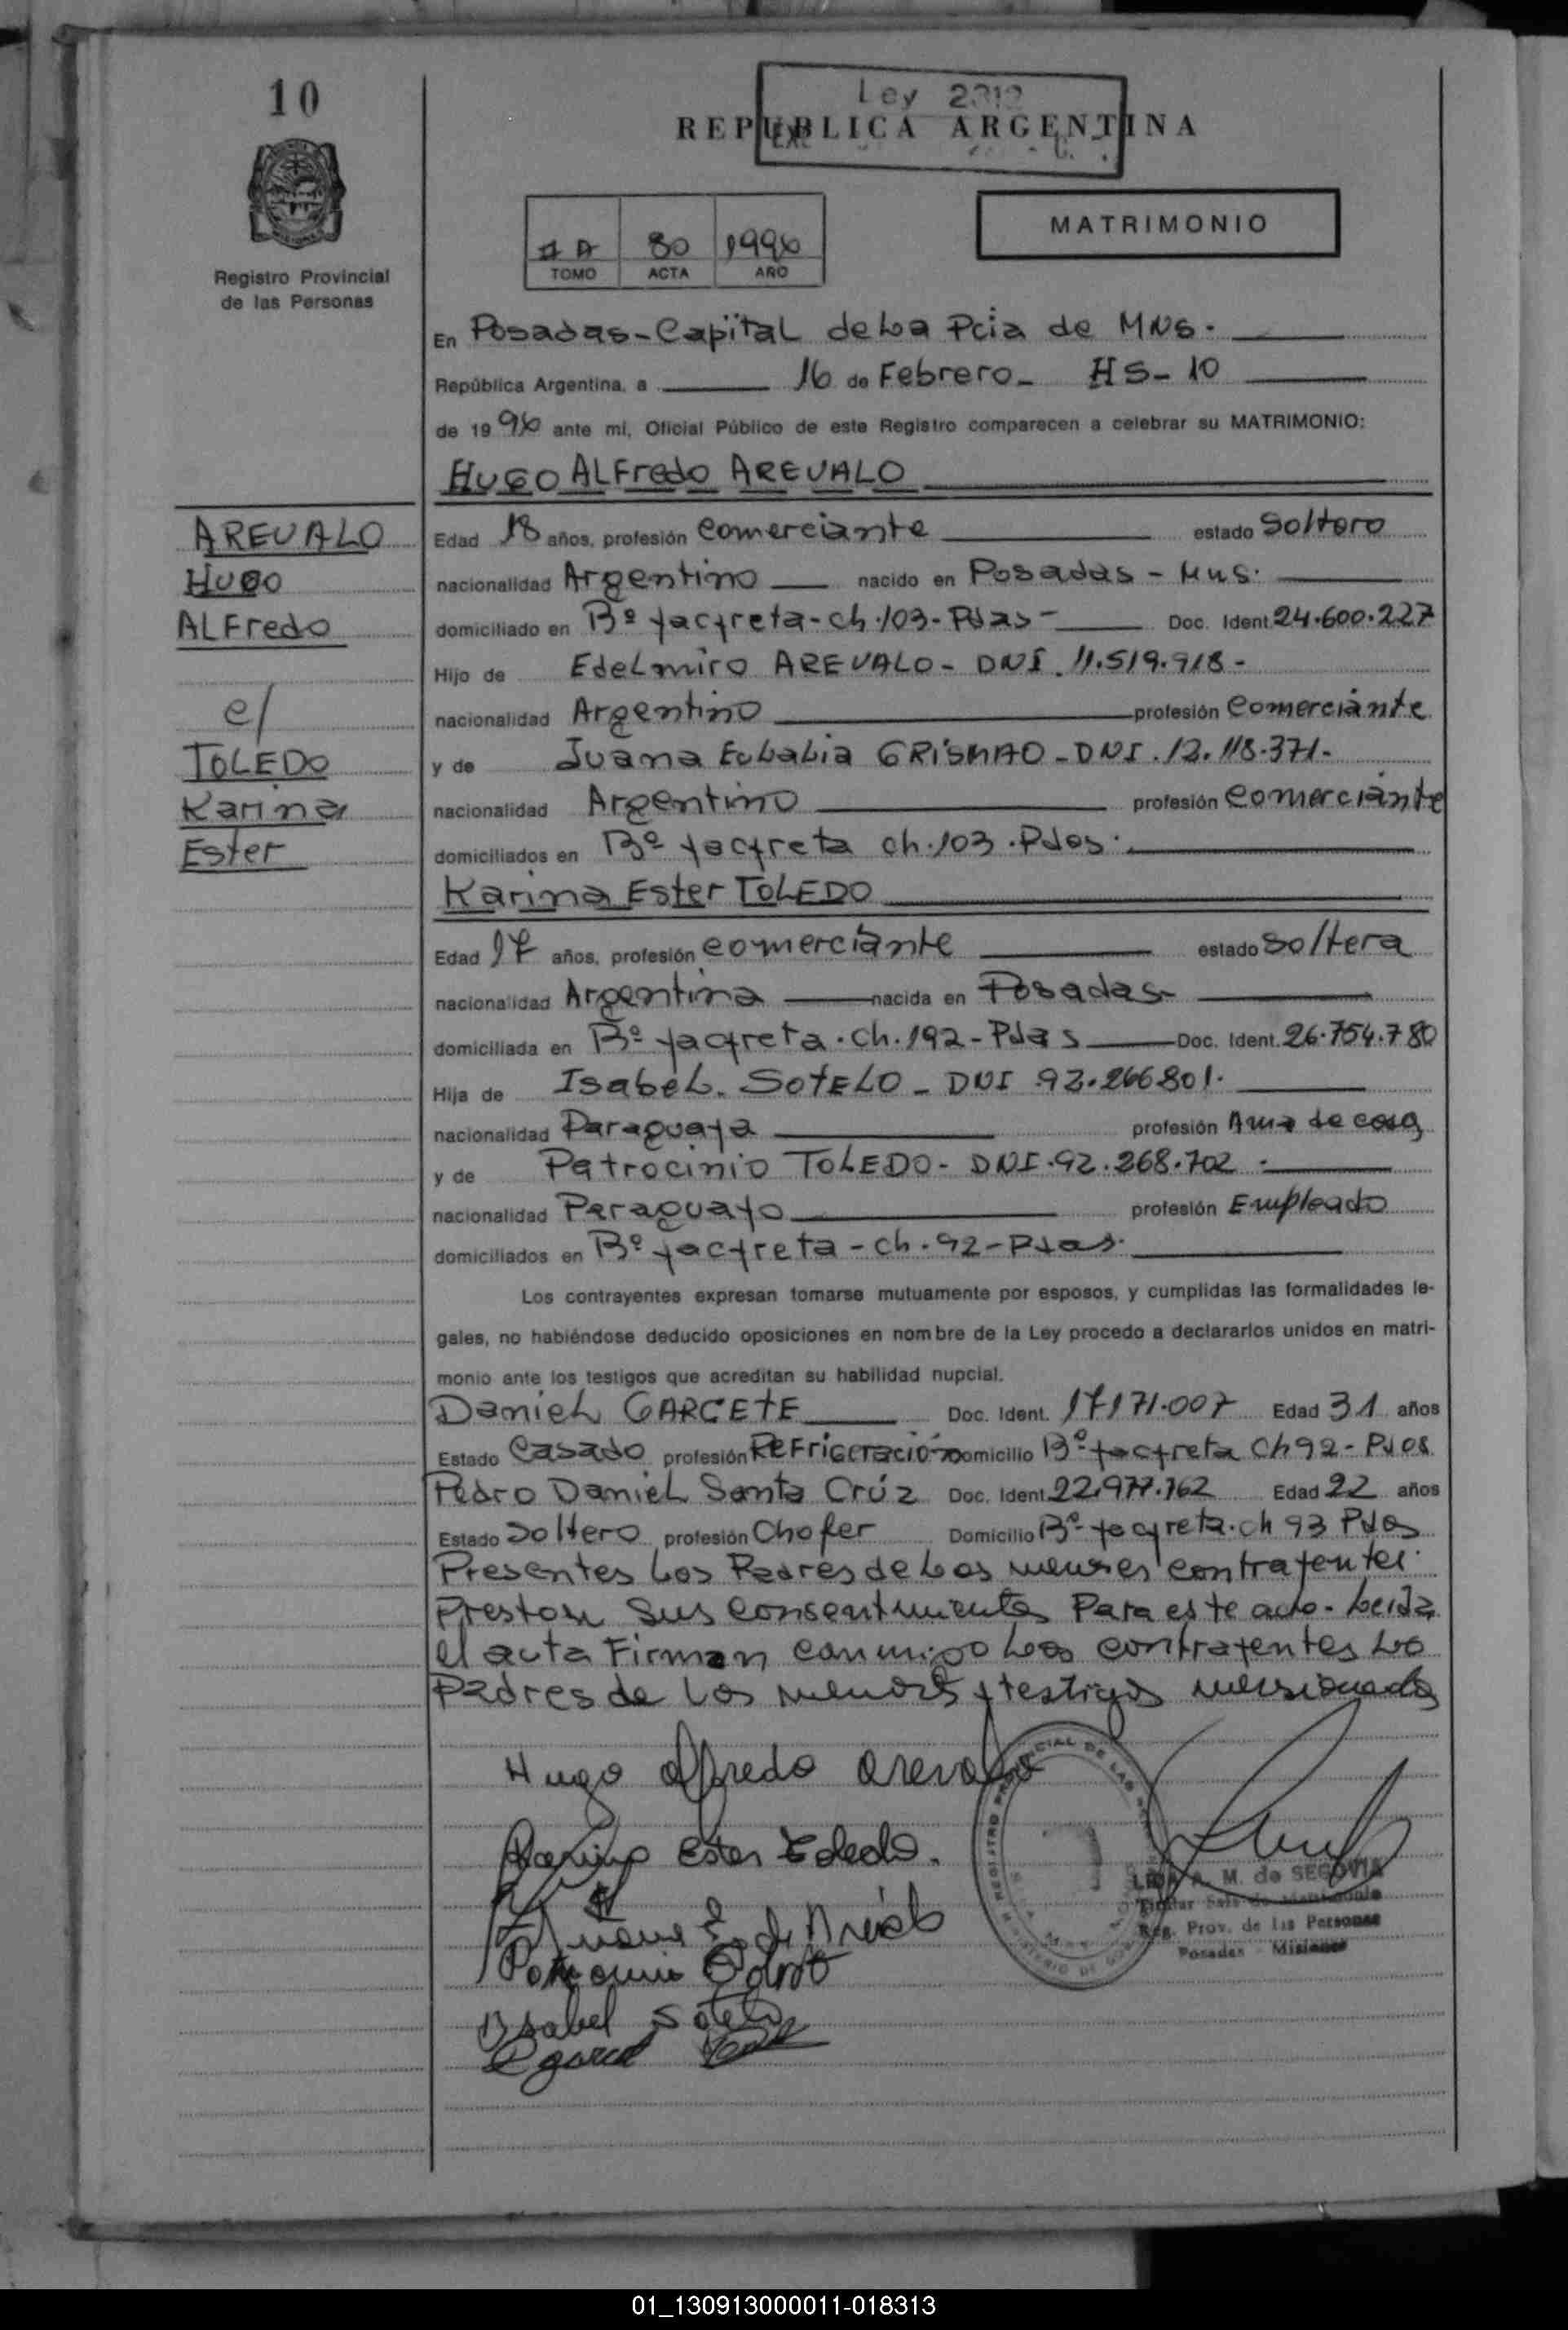 10
Ley 2312
REPUBLICA ARGENTINA
MATRIMONIO
1 A 80 1996
TOMO ACTA AÑO
Registro Provincial
de las Personas
En Posadas - Capital de La Pcia de MNS.
República Argentina, a 16 de Febrero - HS - 10
de 1996 ante mi, Oficial Público de este Registro comparecen a celebrar su MATRIMONIO:
HUGO ALFredo AREVALO
AREVALO
HUGO
ALFredo
e/
TOLEDO
Karina
Ester
Edad 18 años, profesión comerciante estado Soltero
nacionalidad Argentino nacido en Posadas - Mns.
domiciliado en Bº Yacyreta - ch. 103 - Pdas - Doc. Ident. 24.600.227
Hijo de EdeLmiro AREVALO - DNI. 11.519.918 -
nacionalidad Argentino profesión comerciante
y de Juana EuLaLia GRISMAO - DNI. 12.118.371 -
nacionalidad Argentino profesión comerciante
domiciliados en Bº Yacyreta ch. 103. Pdas.
Karina Ester TOLEDO
Edad 17 años, profesión comerciante estado Soltera
nacionalidad Argentina nacida en Posadas -
domiciliada en Bº Yacyreta. Ch. 192 - Pdas Doc. Ident. 26.754.780
Hija de IsabeL. SOTELO - DNI 92.266801.
nacionalidad Paraguaya profesión Ama de casa
y de Patrocinio TOLEDO - DNI. 92.268.702.
nacionalidad Paraguayo profesión Empleado
domiciliados en Bº Yacyreta - ch. 92 - Pdas.
Los contrayentes expresan tomarse mutuamente por esposos, y cumplidas las formalidades le-
gales, no habiéndose deducido oposiciones en nombre de la Ley procedo a declararlos unidos en matri-
monio ante los testigos que acreditan su habilidad nupcial.
DanieL GARCETE Doc. Ident. 17171.007 Edad 31 años
Estado Casado profesión Refrigeración Domicilio Bº Yacyreta Ch 92 - Pdas
Pedro DanieL Santa Crúz Doc. Ident. 22.977.762 Edad 22 años
Estado Soltero profesión Chofer Domicilio Bº Yacyreta. ch 93 Pdas
Presentes Los Padres de Los menores contrayentes.
Prestan sus consentimientos Para este acto. Leida
el acta Firman conmigo Los contrayentes Lo
Padres de Los menores y testigos mensionados
Hugo Alfredo Arevalo
Karina Ester Toledo.
Isabel Sotelo
REGISTRO PROVINCIAL DE LAS
M. de SEGOVIA
Titular Sala de Matrimonio
Reg. Prov. de las Personas
Posadas - Misiones
01_130913000011-018313